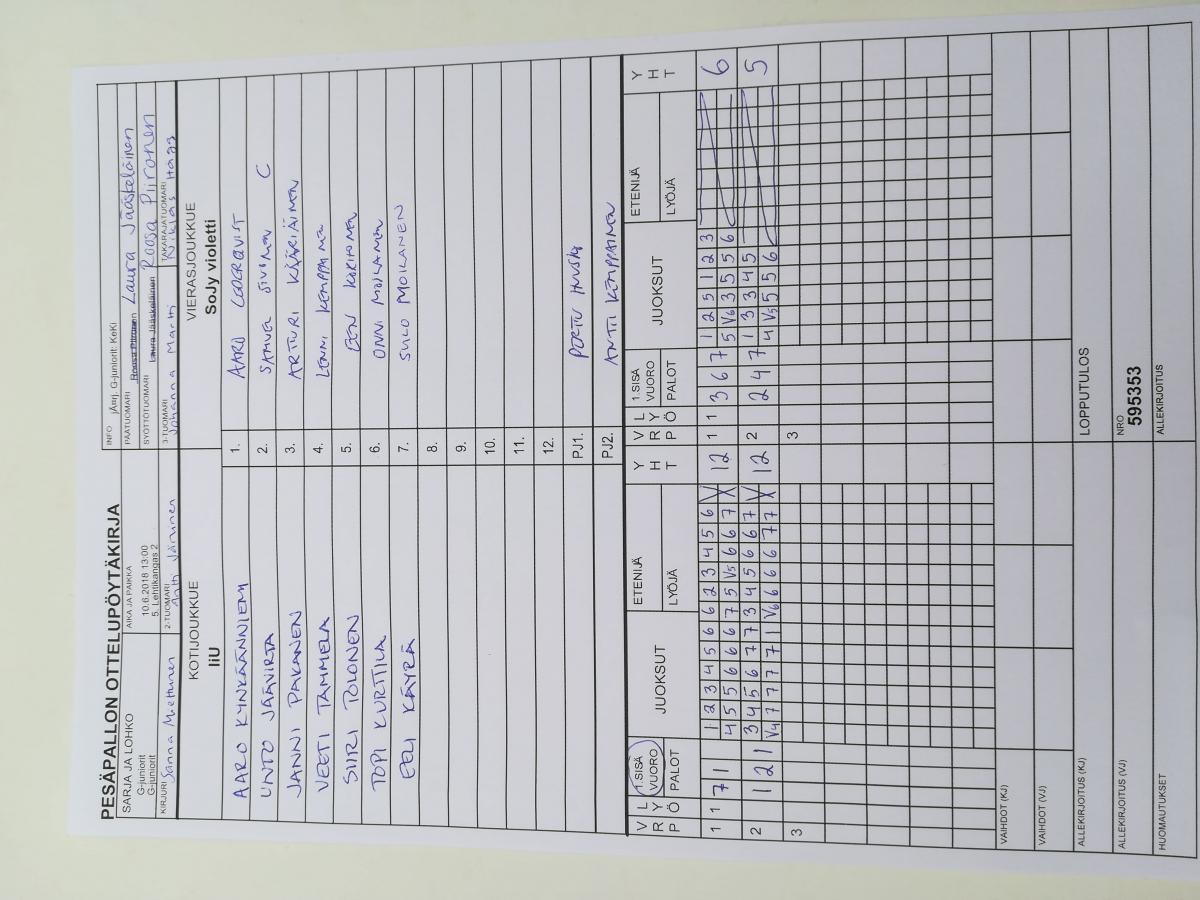 PESÄPALLON OTTELUPÖYTÄKIRJA
INFO jÄ¤rj. G-juniorit: KeKi
SARJA JA LOHKO
G-juniorit
G-juniorit
AIKA JA PAIKKA
10.6.2018 13:00
5. Lehtikangas 2
PÄÄTUOMARI Roosa Piironen Laura Jääskeläinen
SYÖTTÖTUOMARI Laura Jääskeläinen Roosa Piironen
KIRJURI Sanna Miettunen
2-TUOMARI
3-TUOMARI Johanna Martti
TAKARAJATUOMARI Niklas Haag
KOTIJOUKKUE
IiU
VIERASJOUKKUE
SoJy violetti
AARO KYNKÄÄNNIEMI 1. AARO CEDERQVIST
UNTO JÄÄVIRTA 2. SAMUEL SIVINEN C
JANNI PAKANEN 3. ARTTURI KÄÄRIÄINEN
VEETI TAMMELA 4. LENNI KEMPPAINEN
SIIRI POLONEN 5. EEN KOKKONEN
TOPI KURTTILA 6. ONNI MOILANEN
EELI KÄYRÄ 7. SULO MOILANEN
8.
9.
10.
11.
12.
PJ1. PERTTU HUUSKO
PJ2. ANTTI KEMPPAINEN
V R P L Y Ö 1.SISÄ VUORO PALOT JUOKSUT ETENIJÄ LYÖJÄ Y H T V R P L Y Ö 1.SISÄ VUORO PALOT JUOKSUT ETENIJÄ LYÖJÄ Y H T
1 1 7 1 1 2 3 4 5 6 6 2 3 4 5 6 12 1 1 3 6 7 1 2 5 1 2 3 6
4 5 5 6 6 6 7 5 V5 6 6 7 5 V6 3 5 5 6
2 1 2 1 3 4 5 6 7 7 3 4 5 6 6 7 12 2 2 4 7 1 3 3 4 5 5
V4 7 7 7 7 1 V6 6 6 6 7 7 4 V5 5 5 6
3 3
VAIHDOT (KJ)
VAIHDOT (VJ)
ALLEKIRJOITUS (KJ) LOPPUTULOS
ALLEKIRJOITUS (VJ) NRO 595353
HUOMAUTUKSET ALLEKIRJOITUS